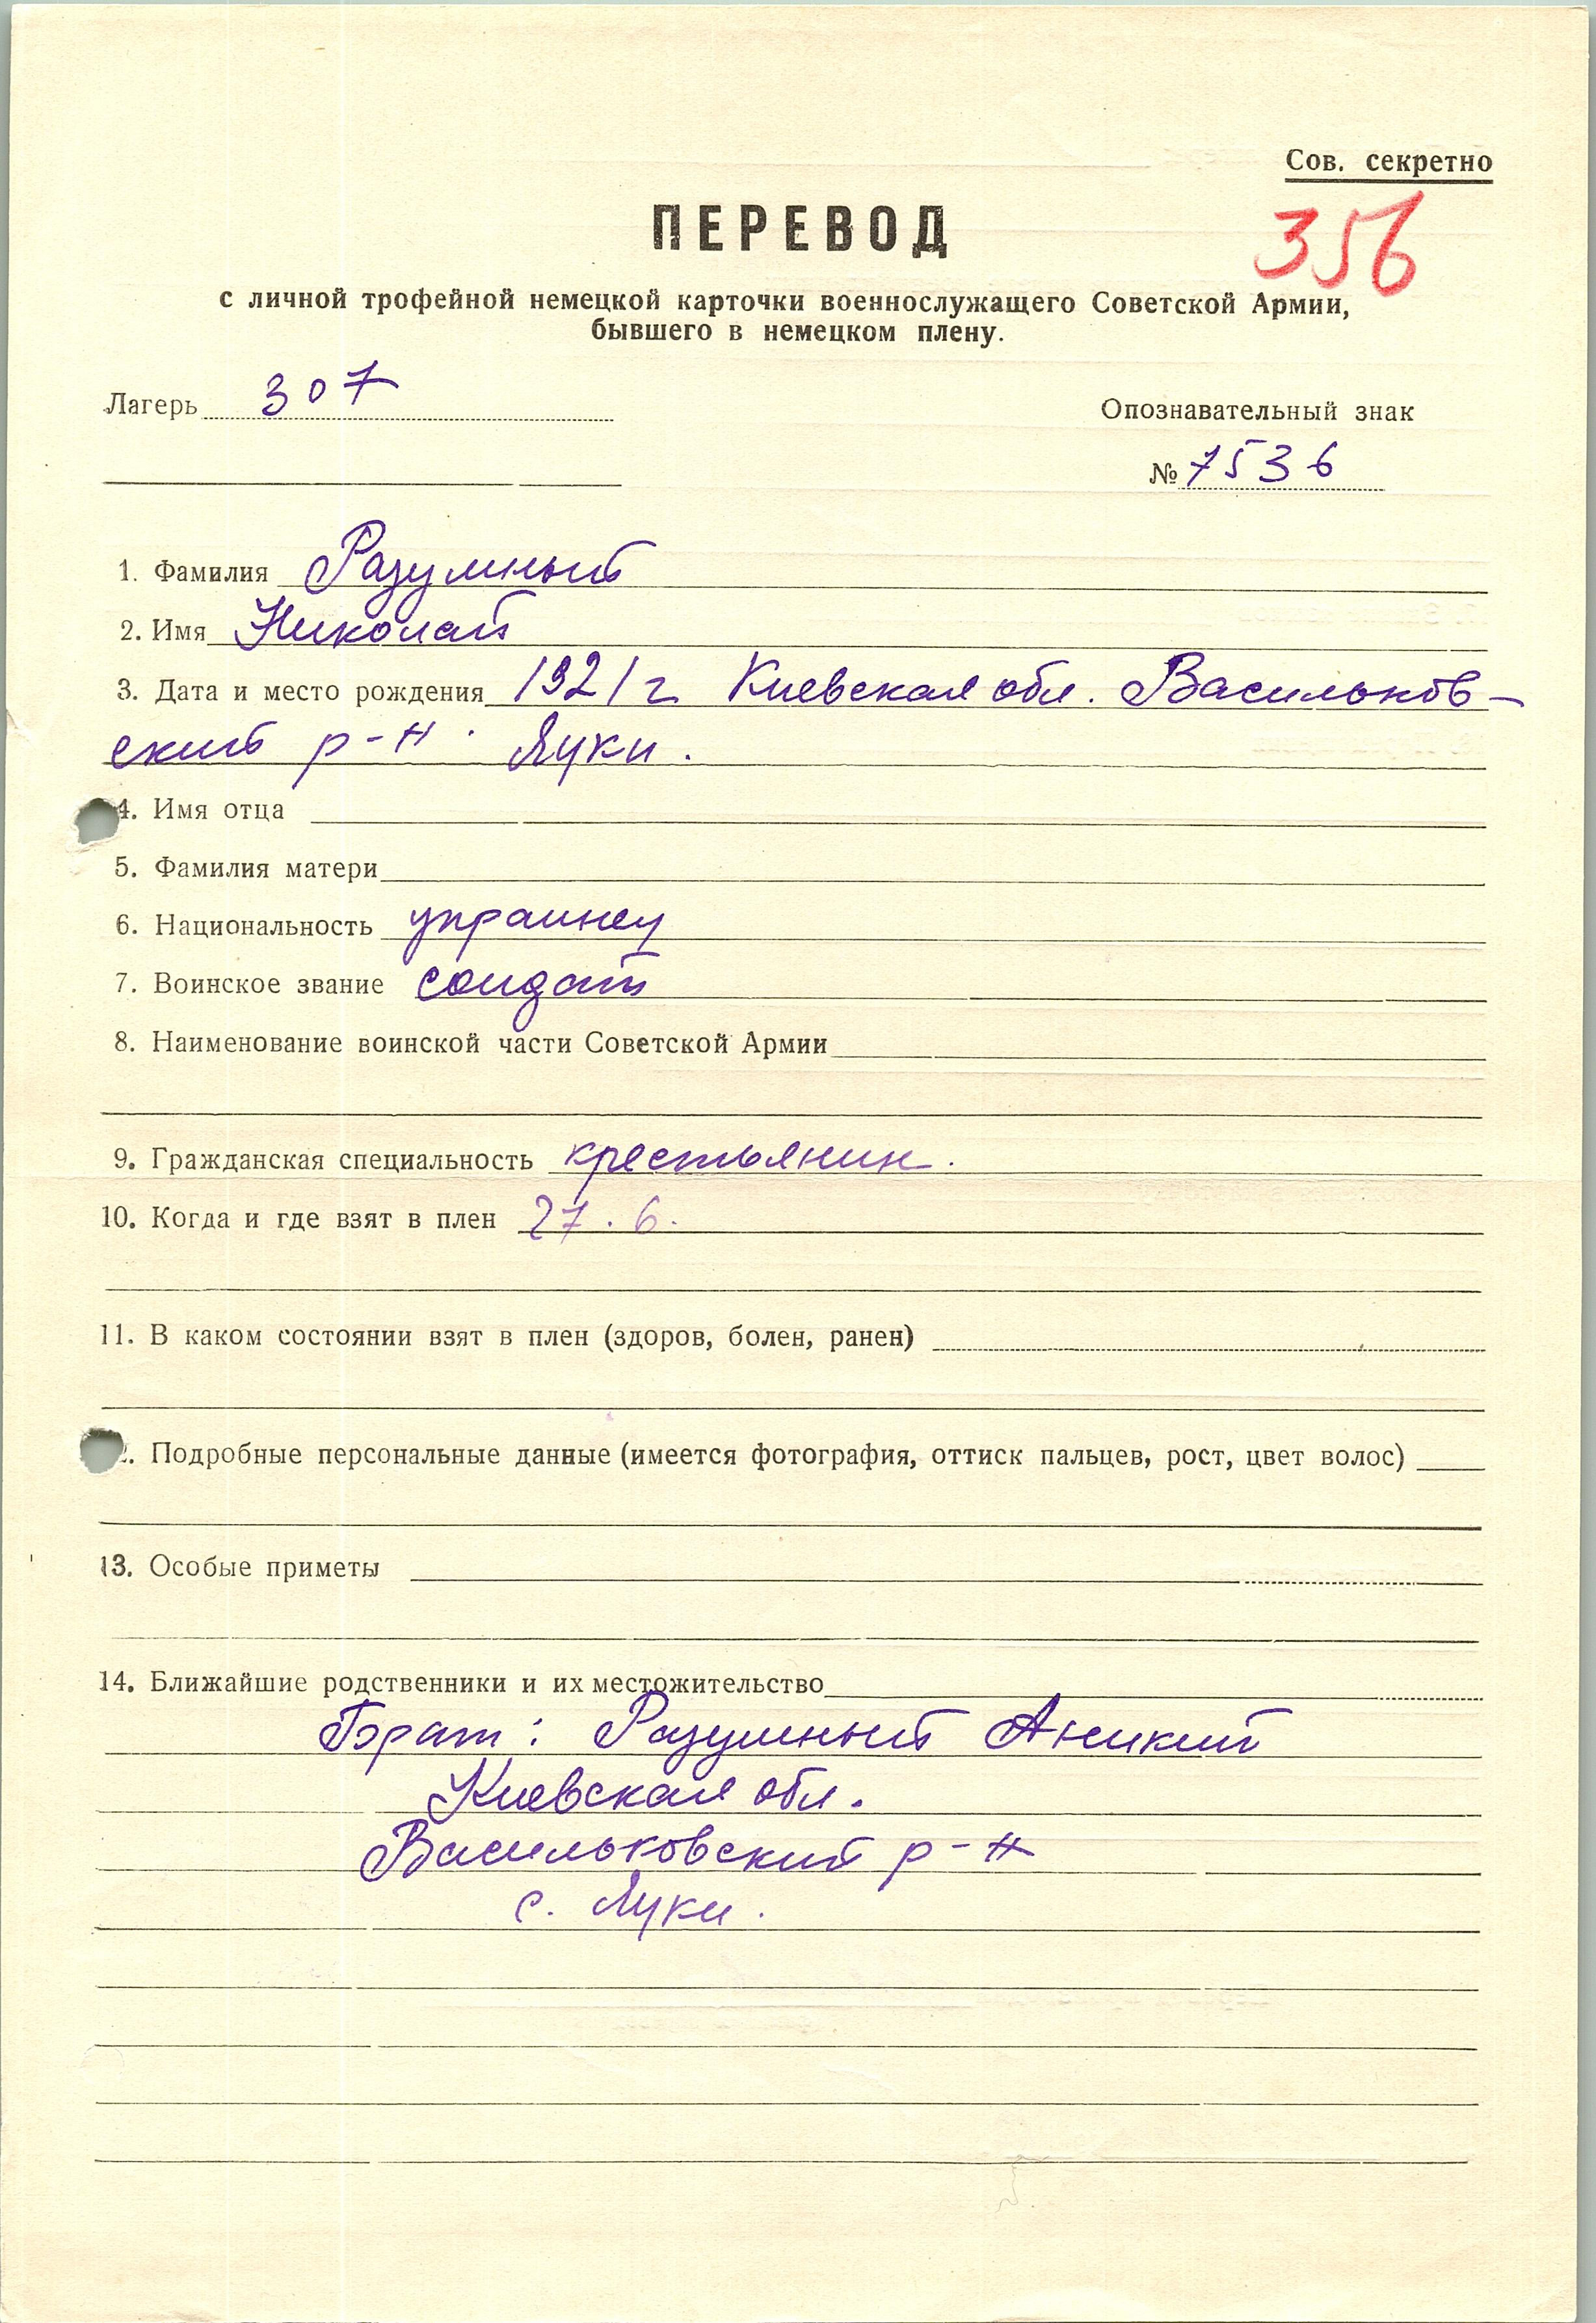 Сов. секретно
356
ПЕРЕВОД
с личной трофейной немецкой карточки военнослужащего Советской Армии,
бывшего в немецком плену.
Лагерь 307
Опознавательный знак
№ 7536
1. Фамилия Разумный
2. Имя Николай
3. Дата и место рождения 1921 г Киевская обл. Васильков-
ский р-н. Луки.
4. Имя отца
5. Фамилия матери
6. Национальность украинец
7. Воинское звание солдат
8. Наименование воинской части Советской Армии
9. Гражданская специальность крестьянин.
10. Когда и где взят в плен 27.6.
11. В каком состоянии взят в плен (здоров, болен, ранен)
2. Подробные персональные данные (имеется фотография, оттиск пальцев, рост, цвет волос)
13. Особые приметы
14. Ближайшие родственники и их местожительство
Брат: Разумный Аникий
Киевская обл.
Васильковский р-н
с. Луки.